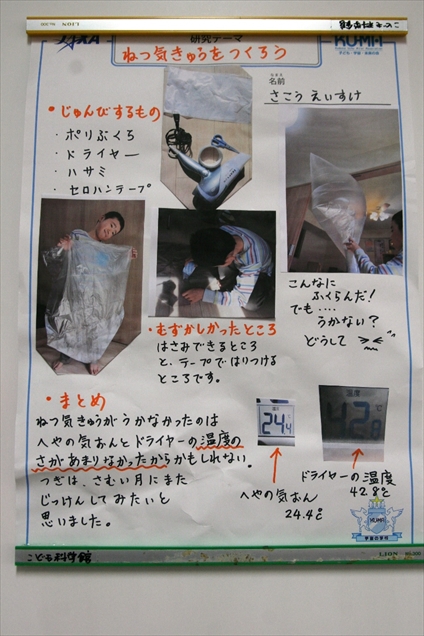 LION
研究テーマ
ねつ気きゅうをつくろう
KUMA
名前
さこう えいすけ
・じゅんびするもの
・ポリぶくろ
・ドライヤー
・ハサミ
・セロハンテープ
こんなに
ふくらんだ!
でも‥‥
うかない?
どうして
・むずかしかったところ
はさみできるところ
と、テープではりつける
ところです。
・まとめ
ねつ気きゅうがうかなかったのは
へやの気おんとドライヤーの温度の
さがあまりなかったからかもしれない。
つぎは、さむい月にまた
じっけんしてみたいと
思いました。
24.4
温度
42.8
へやの気おん
24.4℃
ドライヤーの温度
42.8℃
KUMA
宇宙の学校
こども科学館
LION